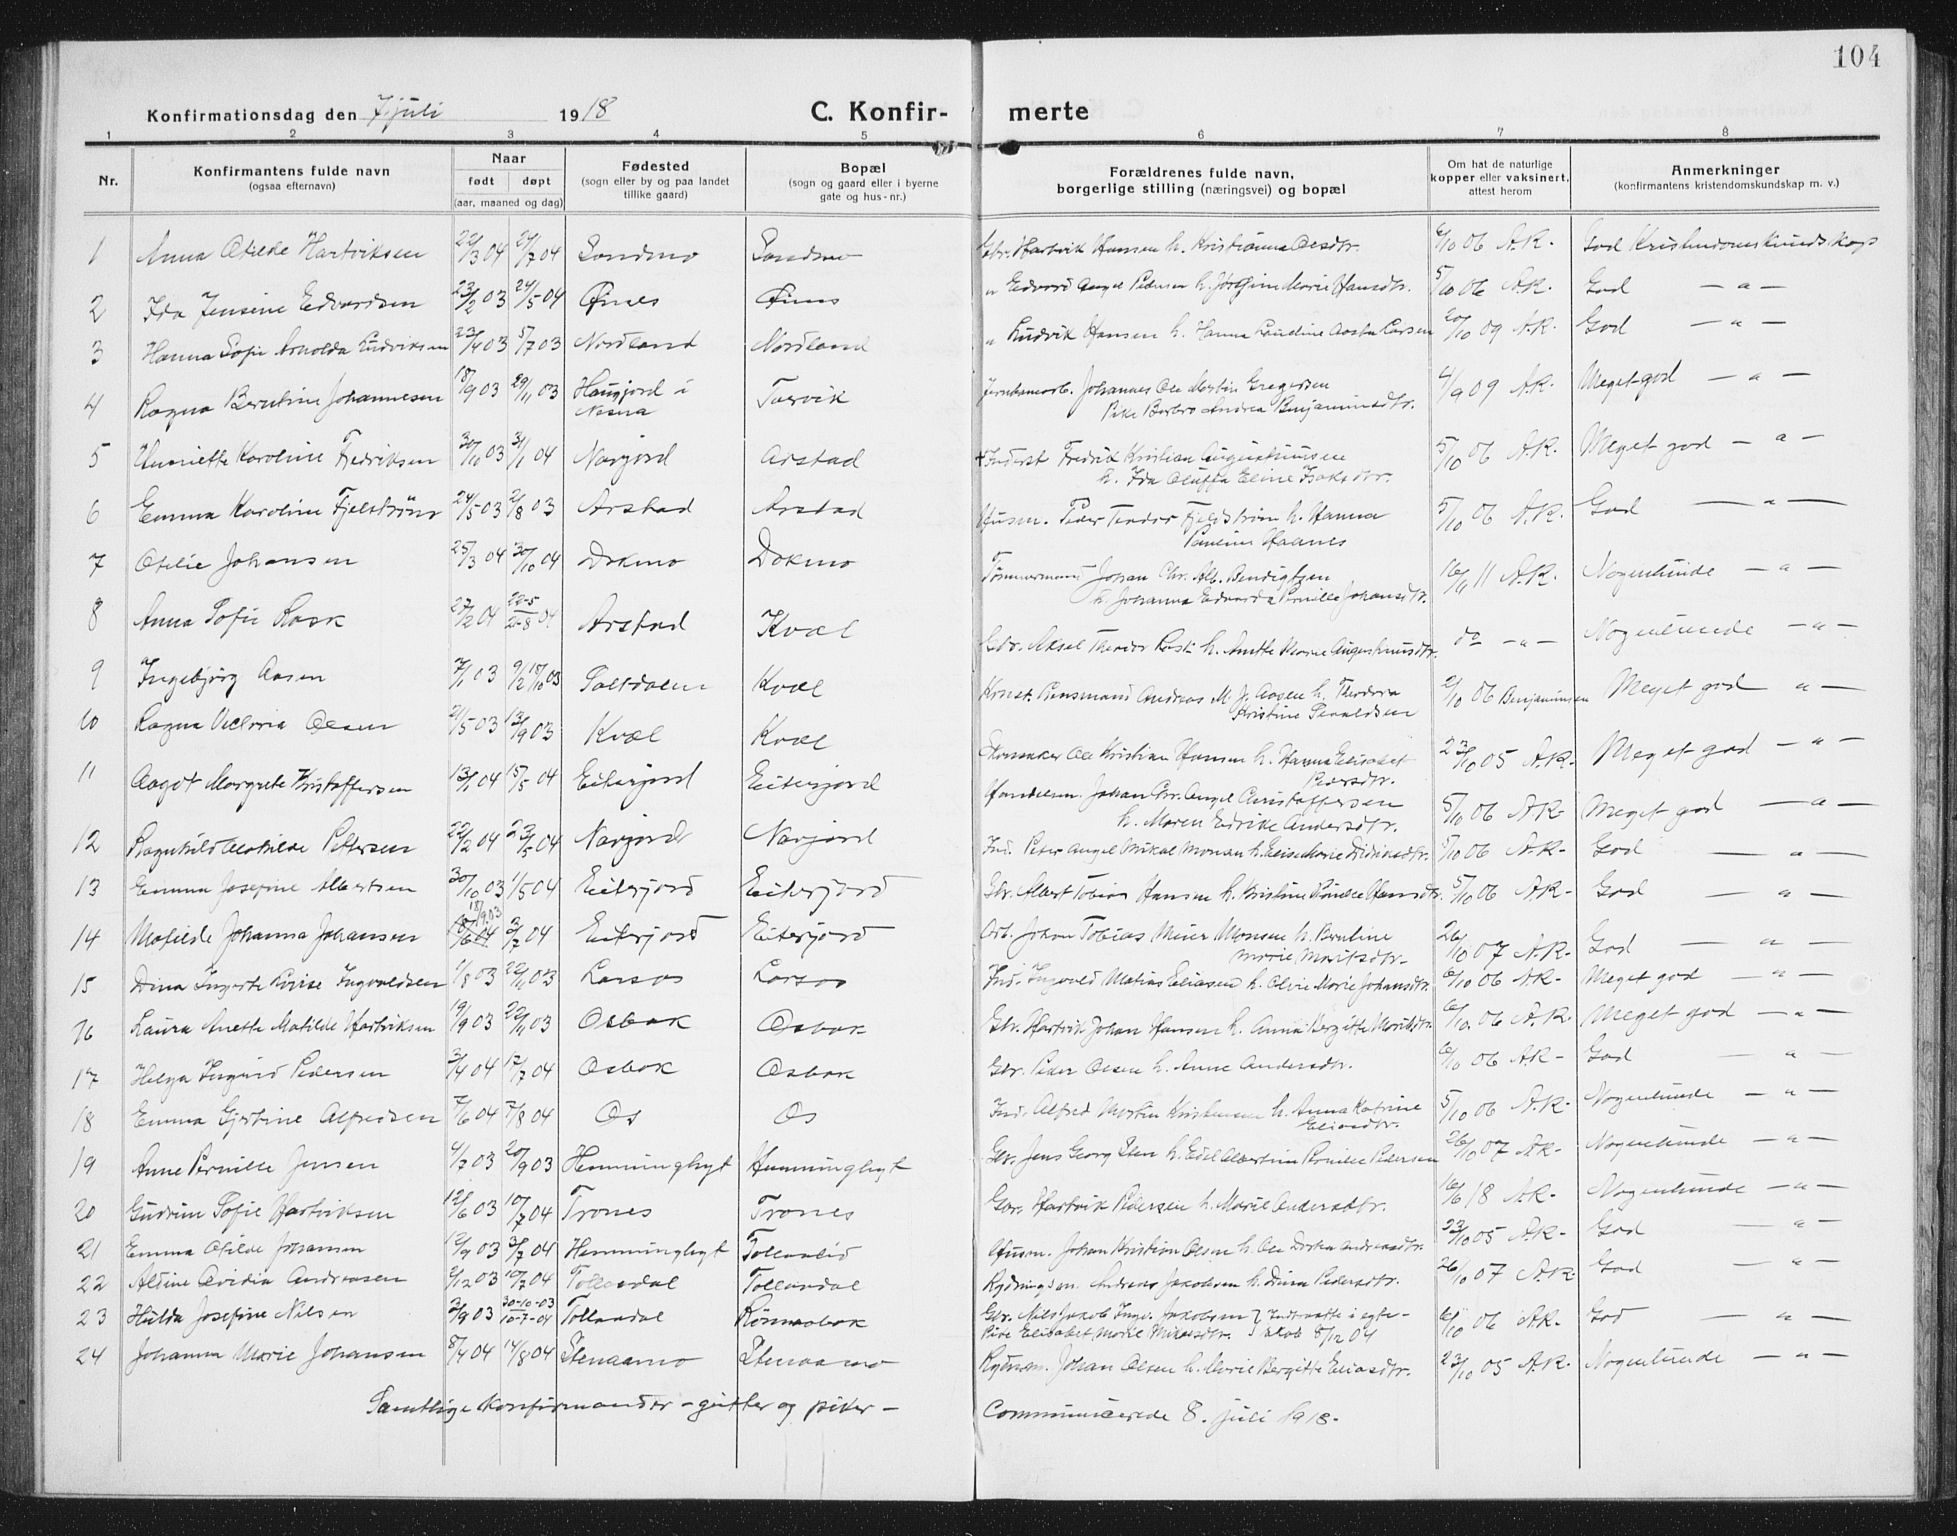 104
Konfirmationsdag den 7 juli 1918
C. Konfirmerte
1 2 3 4 5 6 7 8
Nr. Konfirmantens fulde navn (ogsaa efternavn) Naar født døpt (aar, maaned og dag) Fødested (sogn eller by og paa landet tillike gaard) Bopæl (sogn og gaard eller i byerne gate og hus-nr.) Forældrenes fulde navn, borgerlige stilling (næringsvei) og bopæl Om hat de naturlige kopper eller vaksinert, attest herom Anmerkninger (konfirmantens kristendomskundskap m. v.)
1 Anna Otilde Hartviksen 22/3 04 24/7 04 Sandmo Sandmo Gbr. Hartvik Hansen h. Kristianna Olsdtr. 6/10 06 A.K. God Kristendomskundskap
2 Ida Jensine Edvardsen 23/2 03 24/5 04 Øines Øines " Edvard Angel Pedersen h. Marie Hansdtr. 5/10 06 A.K. God — " —
3 Hanna Sofie Arnolda Ludviksen 23/4 03 5/7 03 Nordland Nordland " Ludvik Hansen h. Hanna Larsen 20/10 09 A.K. God — " —
4 Ragna Berntine Johannesen 18/9 03 29/11 03 Haugjord i Nesna Torvik Johannes Ole Martin Gregersen
Pike Barbro Andrea Benjaminsdtr. 4/9 09 A.K. Meget god — " —
5 Henriette Karoline Fredriksen 30/10 03 31/1 04 Navjord Arstad + Inderst Fredrik Kristian Augustinusen
h. Ida Oluffa Eline Isaksdtr. 5/10 06 A.K. Meget god — " —
6 Emma Karoline Fjelstrøm 24/5 03 2/8 03 Arstad Arstad Husm. Peder Teodor Fjeldstrøm h. Hanna
Pauline Haanes 5/10 06 A.K. God — " —
7 Otilie Johansen 25/3 04 30/10 04 Dokmo Dokmo Tømmermand Johan Chr. Alb. Bendigtsen
h. Johanna Edvarda Pernille Johansdtr. 16/9 11 A.K. Nogenlunde — " —
8 Anna Sofie Rask 27/2 04 22-5 21-8 04 Arstad Kvæl Gbr. Aksel Theodor h. Anette Marie Augustinusdtr. do — " — Nogenlunde — " —
9 Ingebjørg Aasen 7/1 03 9/2 18/10 03 Saltdalen Kvæl Andreas M. J. Aasen h. Theodora
Kristine 2/10 06 Benjaminsen Meget god — " —
10 Ragna Victoria Olsen 21/5 03 13/9 03 Kvæl Kvæl Skomaker Ole Kristian Hansen h. Hanna Elisabet
Pedersdtr. 23/10 05 A.K. Meget god — " —
11 Aagot Margrete Kristoffersen 13/1 04 15/5 04 Eiterjord Eiterjord Handelsm. Johan Chr. Angel Christoffersen
h. Maren Edrike Andersdtr. 5/10 06 A.K. Meget god — " —
12 Ragnhild Mathilde Pettersen 22/2 04 23/5 04 Navjord Navjord Ind. Peter Angel Mikal Monsen h. Elise Marie Didriksdtr. 5/10 06 A.K. God — " —
13 Emma Josefine Albertsen 30/10 03 1/5 04 Eiterjord Eiterjord Gbr. Albert Tobias Hansen h. Kristine Hansdtr. 5/10 06 A.K. God — " —
14 Matilde Johanna Johansen 18/9 03 3/7 04 Eiterjord Eiterjord Arb. Johan Tobias Meier Monsen h. Berntine
Marie Moritsdtr. 26/10 07 A.K. God — " —
15 Dina Ingerte Lovise Ingvaldsen 1/8 03 22/11 03 Larsos Larsos Ind. Ingvald Matias Eliasen h. Olvie Marie Johansdtr. 6/10 06 A.K. Meget god — " —
16 Laura Anette Matilde Hartviksen 19/9 03 22/11 03 Osbak Osbak Gbr. Hartvik Johan Hansen h. Anna Bergitte Moritsdtr. 6/10 06 A.K. Meget god — " —
17 Helga Ingvard Pedersen 3/4 04 17/7 04 Osbak Osbak Gbr. Peder Olsen h. Anne Andersdtr. 6/10 06 A.K. God — " —
18 Emma Gjertine Alfredsen 7/6 04 7/8 04 Os Os Ind. Alfred Martin Kristensen h. Anna Katrine
Eliasdtr. 5/10 06 A.K. Nogenlunde — " —
19 Anne Pernille Jensen 4/7 03 20/9 03 Hemminghyt Hemminghyt Gbr. Jens Georg Sten h. Edel Albertine Pernille Pedersen 26/10 07 A.K. Nogenlunde — " —
20 Gudrun Sofie Hartviksen 12/6 03 10/7 04 Trones Trones Gbr. Hartvik Pedersen h. Marie Andersdtr. 16/6 18 A.K. Nogenlunde — " —
21 Emma Otilde Johansen 12/9 03 3/7 04 Hemminghyt Tollaalid Husm. Johan Kristian Olsen h. Andreasdtr. 23/10 05 A.K. God — " —
22 Aldine Ovidia Andreasen 2/12 03 10/7 04 Tollaadal Tollaadal Rydningsm. Andreas Jakobsen h. Dina Pedersdtr. 26/10 07 A.K. God — " —
23 Hulda Josefine Nilsen 3/9 03 30-10-03 10-7-04 Tollaadal Rönnaabak Gbr. Nils Jakob Ingv. Jakobsen } Indtraadte i egte-
Pike Elisabet Marie Mikalsdtr. } skab 8/12 04 6/10 06 A.K. God — " —
24 Johanna Marie Johansen 8/4 04 14/8 04 Stenaamo Stenaamo Rydnsm. Johan Olsen h. Marie Bergitte Eliasdtr. 23/10 05 A.K. Nogenlunde — " —
Samtlige konfirmander – gutter og piker – Communicerede 8. juli 1918.